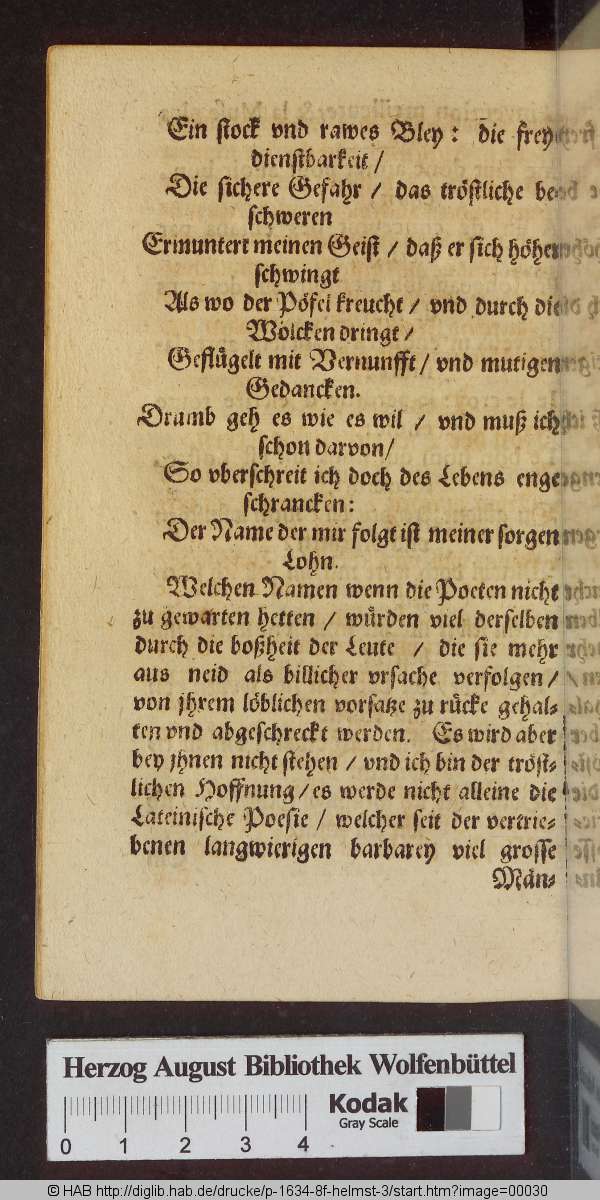 Ein stock vnd rawes Bley: die frey
dienstbarkeit /
Die sichere Gefahr / das tröstliche be-
schweren
Ermuntert meinen Geist / daß er sich höher
schwingt
Als wo der Pöfel kreucht / vnd durch die
Wolcken dringt /
Geflügelt mit Vernunfft / vnd mutigen
Gedancken.
Drumb geh es wie es wil / vnd muß ich
schon darvon /
So vberschreit ich doch des Lebens enge
schrancken:
Der Name der mir folgt ist meiner sorgen
Lohn.
Welchen Namen wenn die Poeten nicht
zu gewarten hetten / würden viel derselben
durch die boßheit der Leute / die sie mehr
aus neid als billicher vrsache verfolgen /
von jhrem löblichen vorsatze zu rücke gehal-
ten vnd abgeschreckt werden. Es wird aber
bey jhnen nicht stehen / vnd ich bin der tröst-
lichen Hoffnung / es werde nicht alleine die
Lateinische Poesie / welcher seit der vertrie-
benen langwierigen barbarey viel grosse
Män-
Herzog August Bibliothek Wolfenbüttel
Kodak
Gray Scale
0 1 2 3 4
© HAB http://diglib.hab.de/drucke/p-1634-8f-helmst-3/start.htm?image=00030